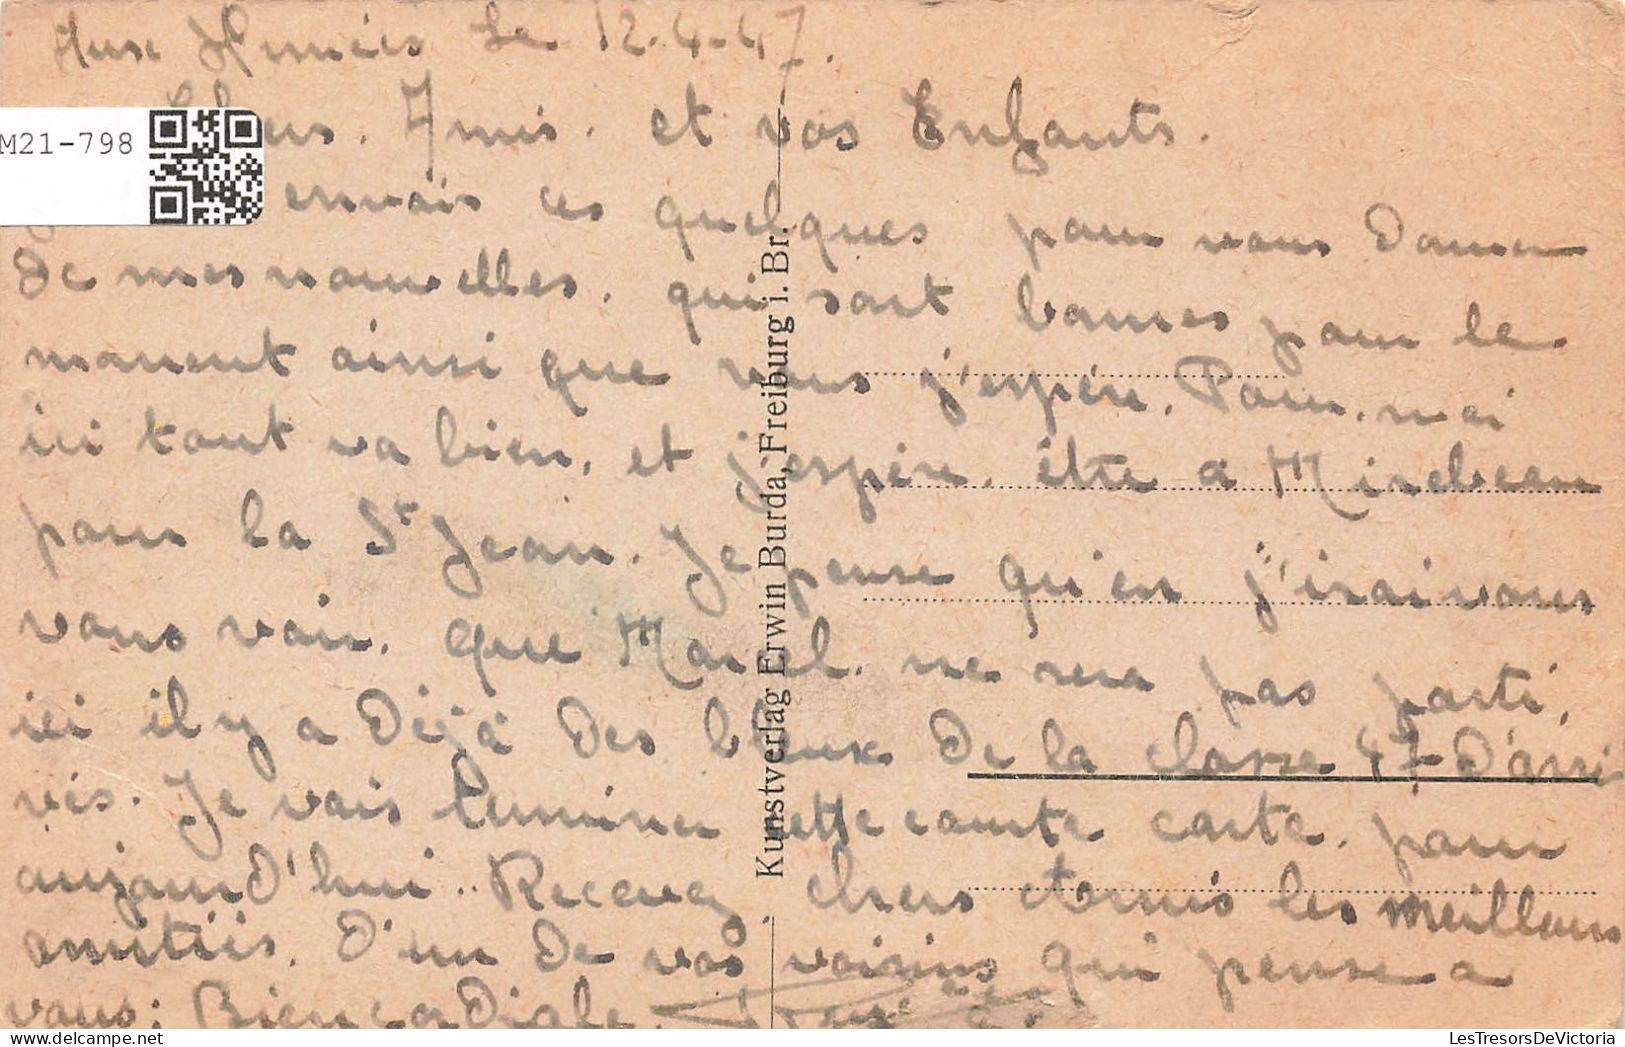 Aux Armées Le 12-4-47.
Chers. Amis. et vos Enfants.
envais ces quelques pour vous Donner
De mes nouvelles. qui sont bonnes pour le
moment ainsi que vous j'espère. Pour. moi
ici tout va bien. et j'espère. être a Mirebeau
pour la St Jean. Je pense qu'en j'irai vous
vous voir. que Marcel. ne sera pas parti.
ici il y a Déjà Des bleux De la classe 47 D'arri
vés. Je vais terminer cette courte carte. pour
aujourD'hui.. Recevez chers et Amis les meilleurs
amitiés. D'un De vos voisins qui pense a
vous. Bien corDiale.
Kunstverlag Erwin Burda, Freiburg i. Br.
M21-798
LesTresorsDeVictoria